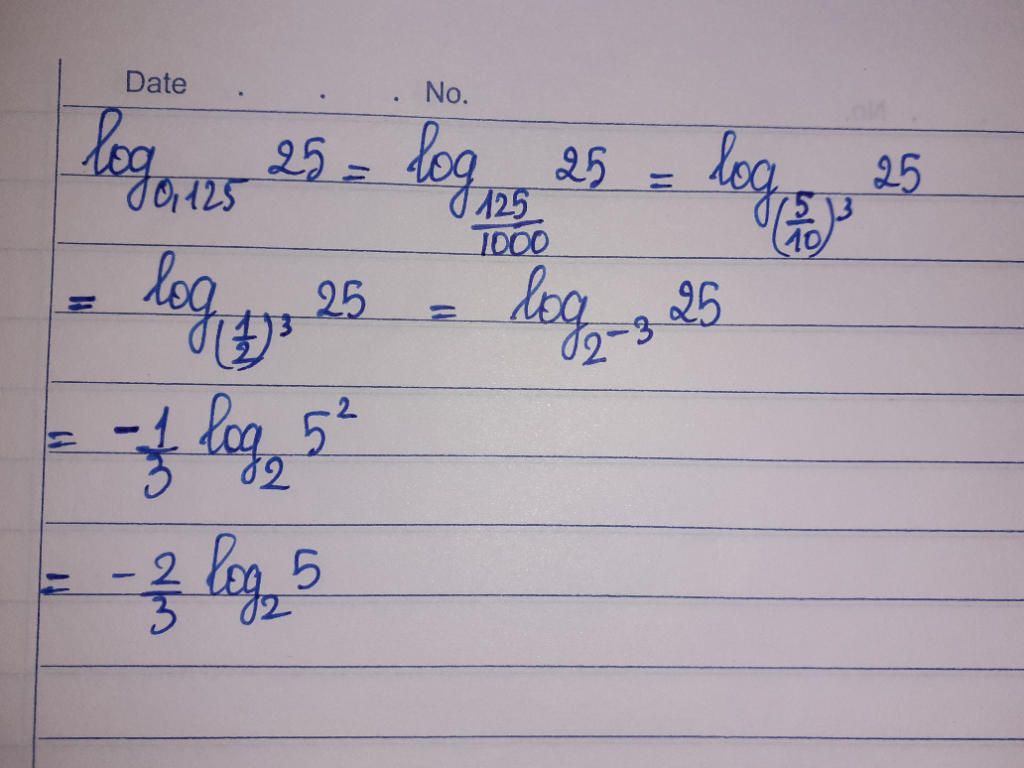 Date . . . No.
log_{0,125} 25 = log_{\frac{125}{1000}} 25 = log_{(\frac{5}{10})^3} 25
= log_{(\frac{1}{2})^3} 25 = log_{2^{-3}} 25
= -\frac{1}{3} log_2 5^2
= -\frac{2}{3} log_2 5